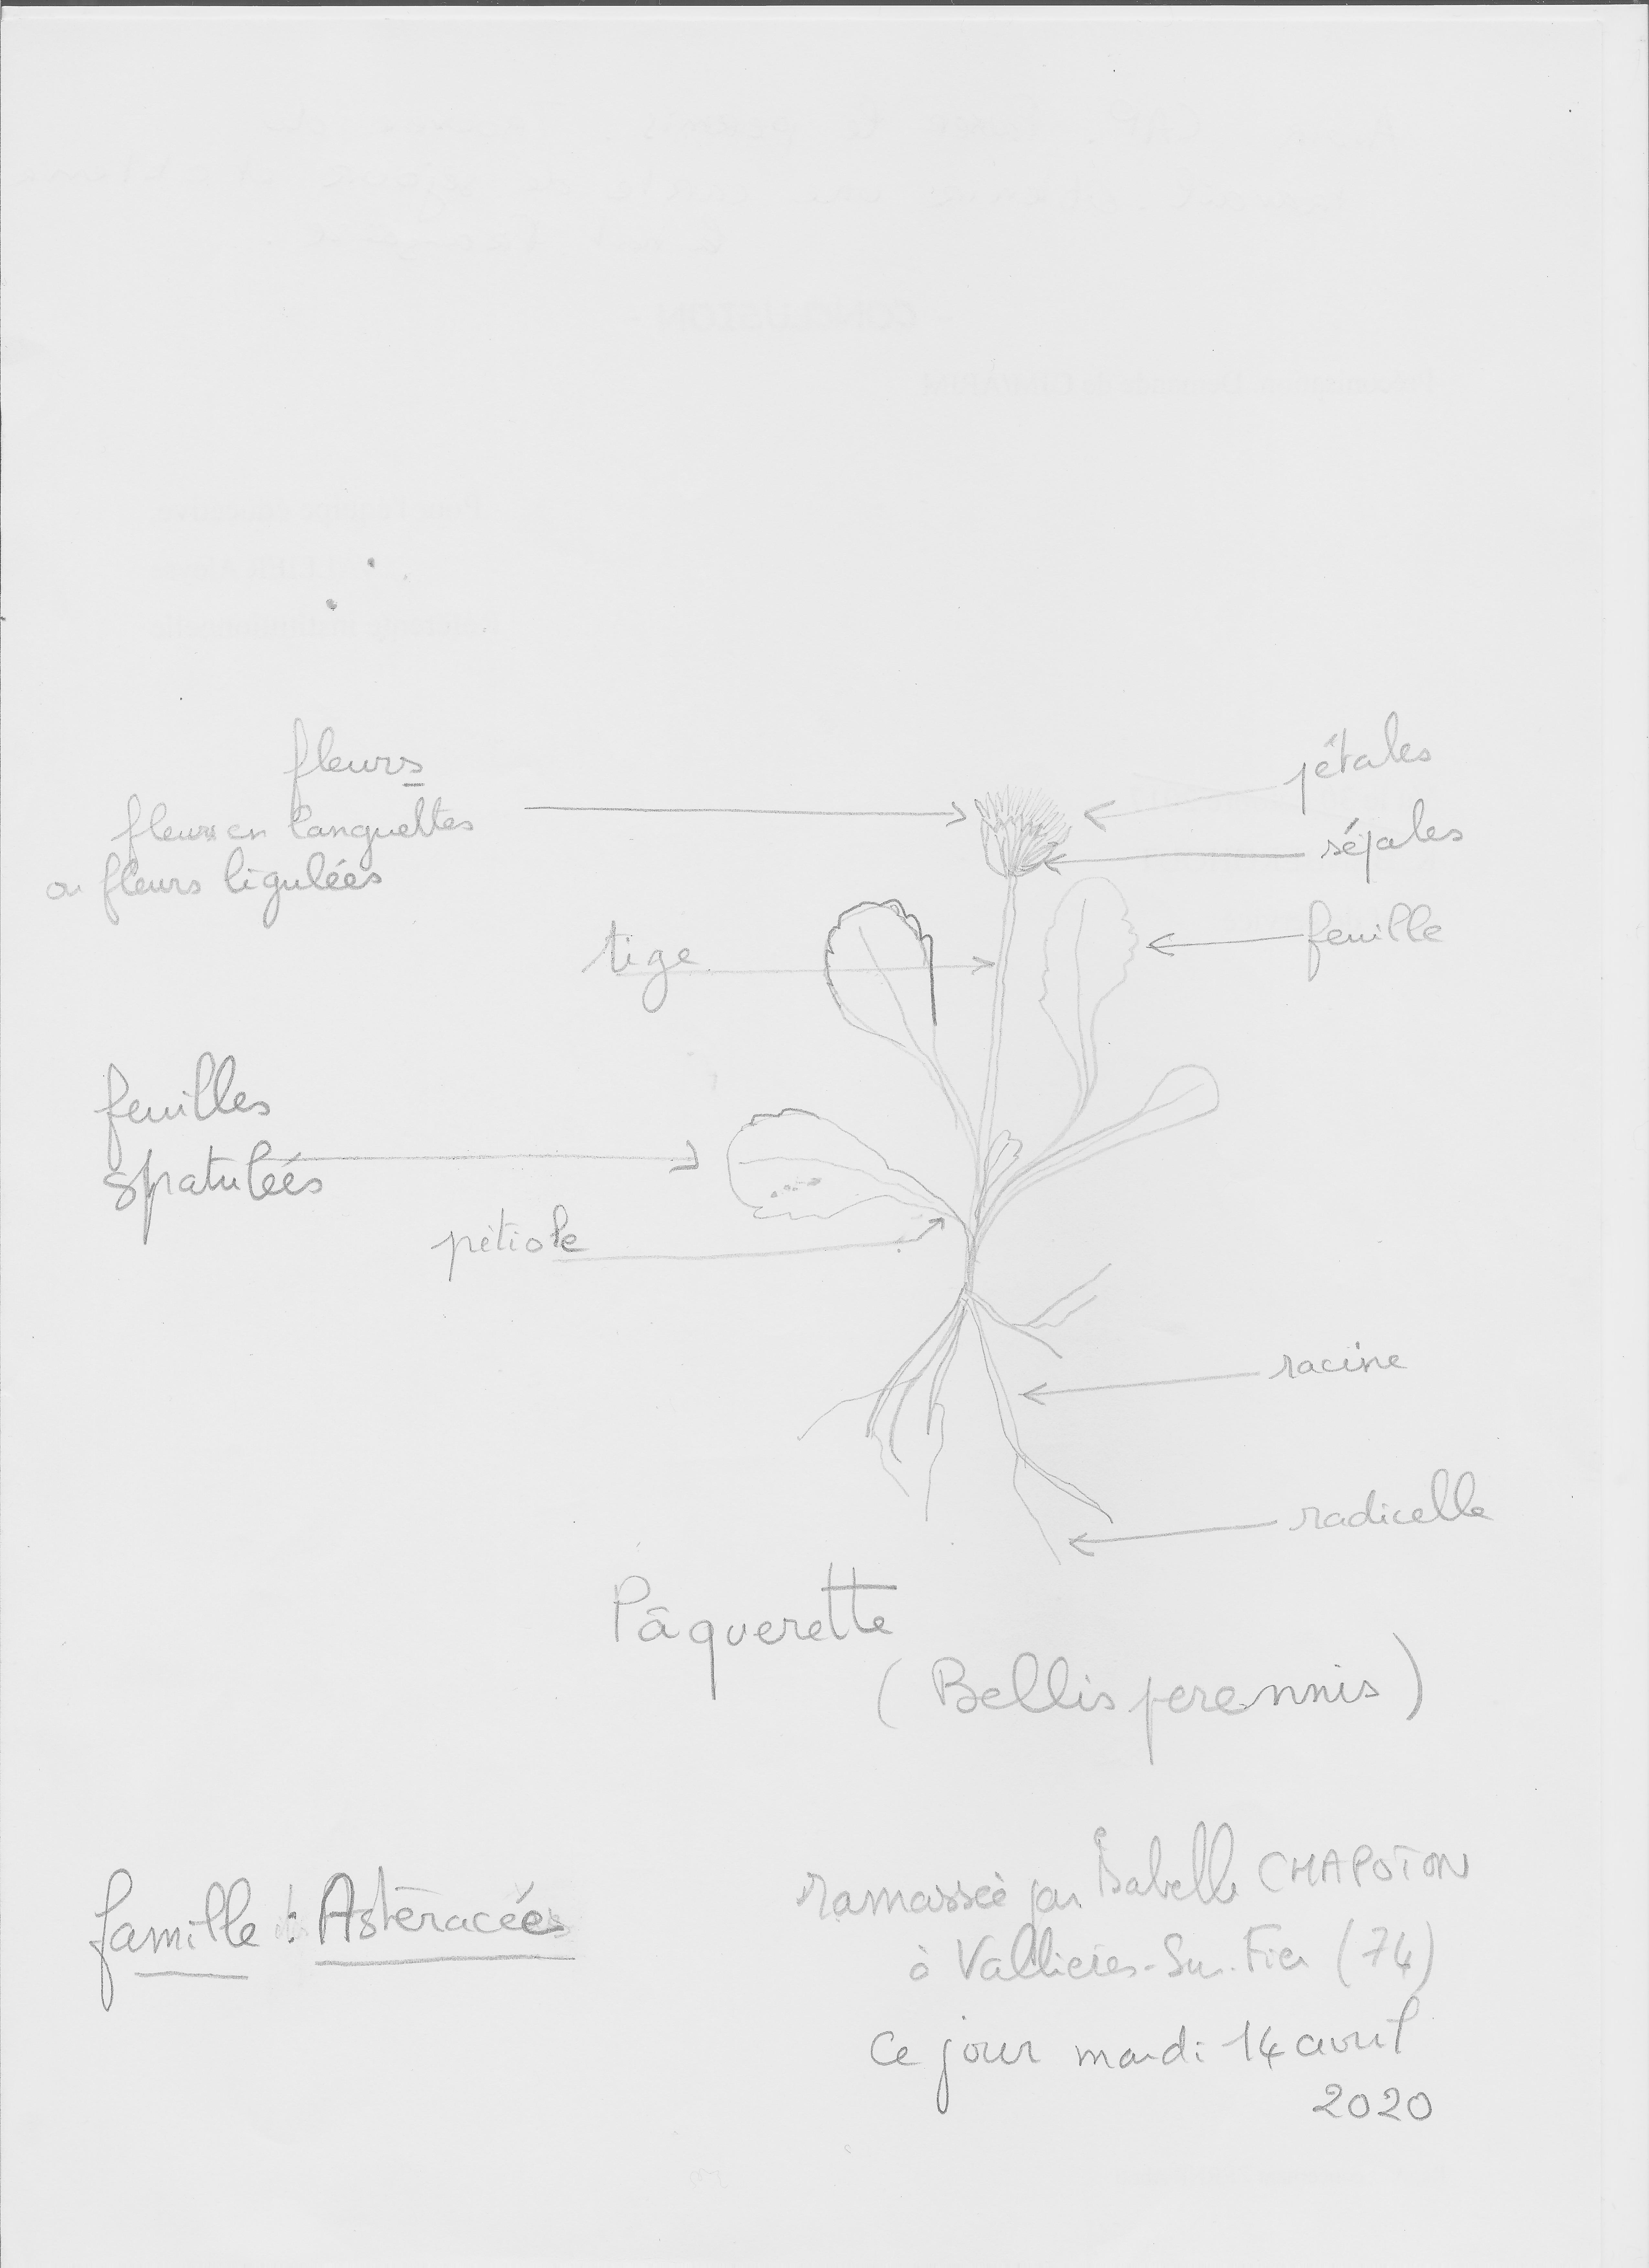 fleurs
fleurs en languettes
ou fleurs ligulées
pétales
sépales
tige
feuille
feuilles
spatulées
pétiole
racine
radicelle
Pâquerette
(Bellis perennis)
famille : Astéracées
ramassée par Isabelle CHAPOTON
à Vallières-Sur-Fier (74)
Ce jour mardi 14 avril
2020
- CONCLUSION -